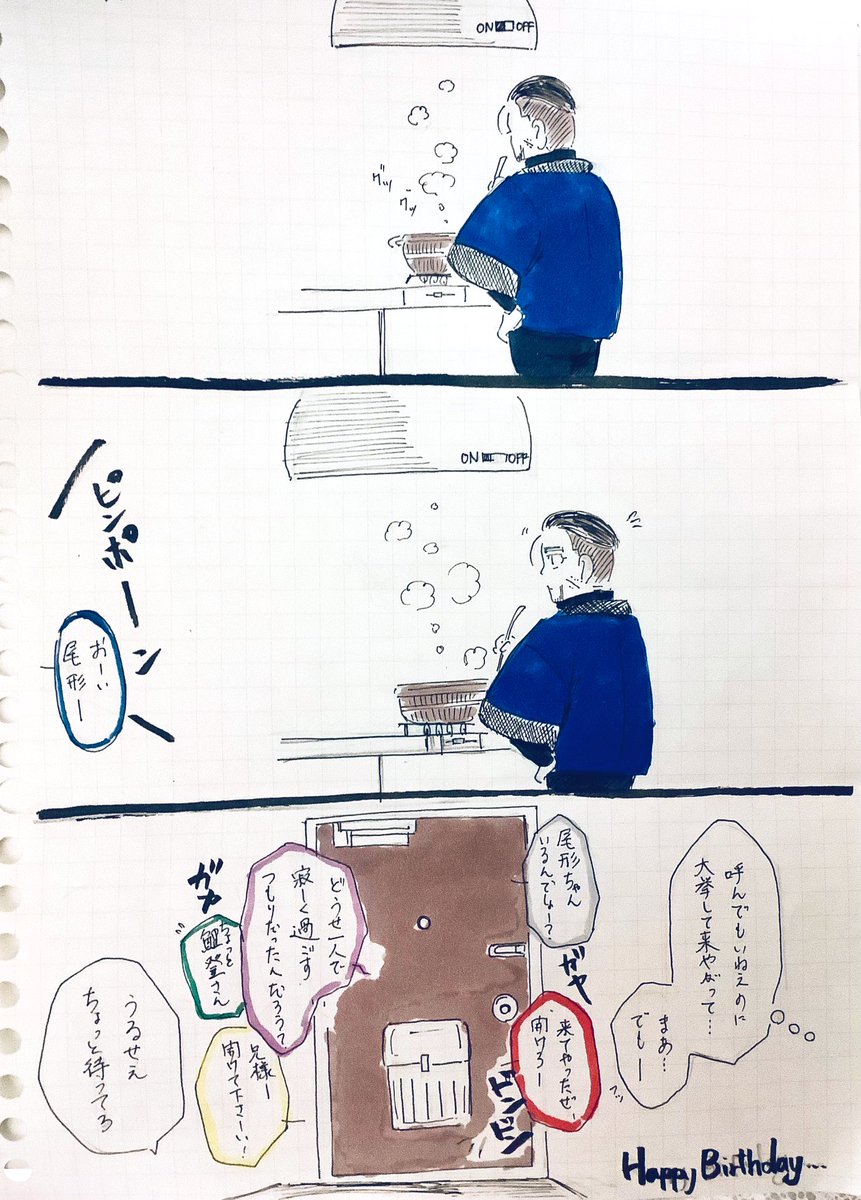 ON OFF
グツ
グツ
ON OFF
ピンポーン
おーい
尾形ー
呼んでもいねえのに
大挙して来やがって…
まあ…
でもー
フッ
尾形ちゃん
いるんでしょー?
ガヤ
どうせ一人で
寂しく過ごす
つもりだったんだろうって
ガヤ
ちょっと
鯉登さん
来てやったぜ、
開けろー
兄様ー
開けて下さーい!
うるせえ
ちょっと待ってろ
ドンドン
Happy Birthday...